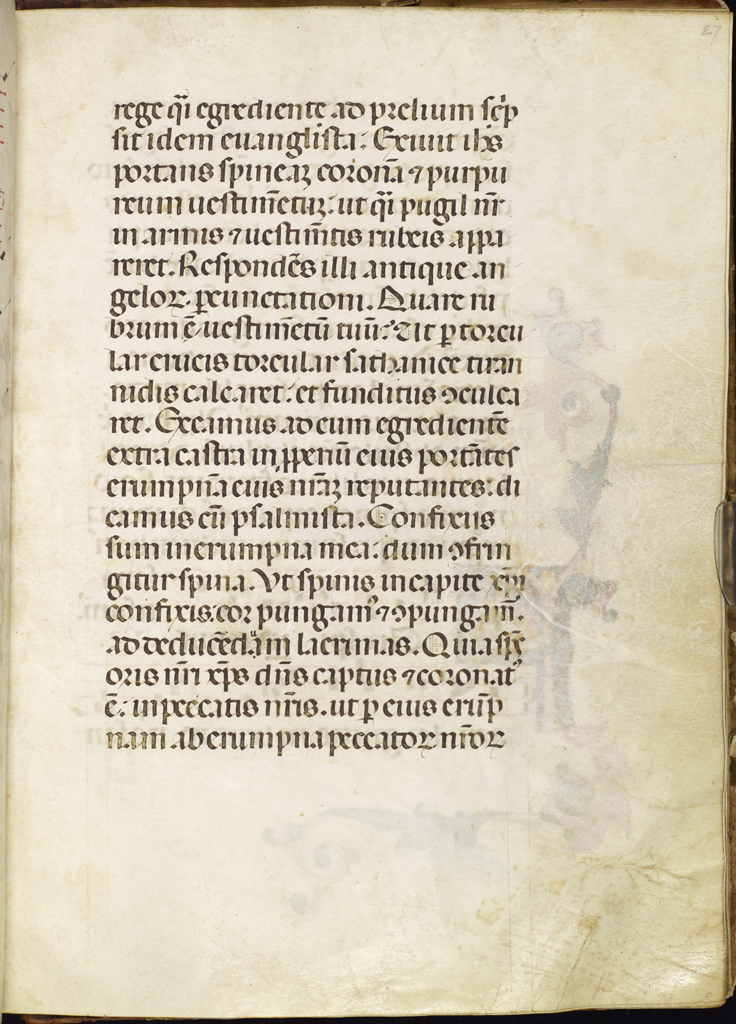 27
rege qͣi egrediente ad prelium sc̄p
sit idem euanglista: Exiuit ih̄s
portans spineaꝫ coronā ⁊ purpu
reum uestimētuꝫ: ut qͣi pugil nr̄
in armis ⁊ uestimītis rubeis appa
reret. Respondēs illi antique an
geloꝝ ꝑcunctationi. Quare ru
brum ē uestimētū tuū: Et ut ꝑ torcu
lar crucis torcular sathanice tiran
nidis calcaret: et funditus ꝯculca
ret. Exeamus ad eum egrediente
extra castra in ꝓperiū eius portātes
erumpnā eius nr̄aꝫ reputantes: di
camus cū psalmista. Confixus
sum in erumpna mea: dum ꝯfrin
gitur spina. Vt spinis in capite xp̄i
confixis: cor pungamꝰ ⁊ ꝯpungam̄.
ad deducēdam lacrimas. Quia sp̄c
oris nr̄i xp̄s dn̄s captus ⁊ coronatꝰ
ē: in peccatis nr̄is. ut ꝑ eius erūp
nam ab erumpna peccatoꝝ nr̄oꝝ